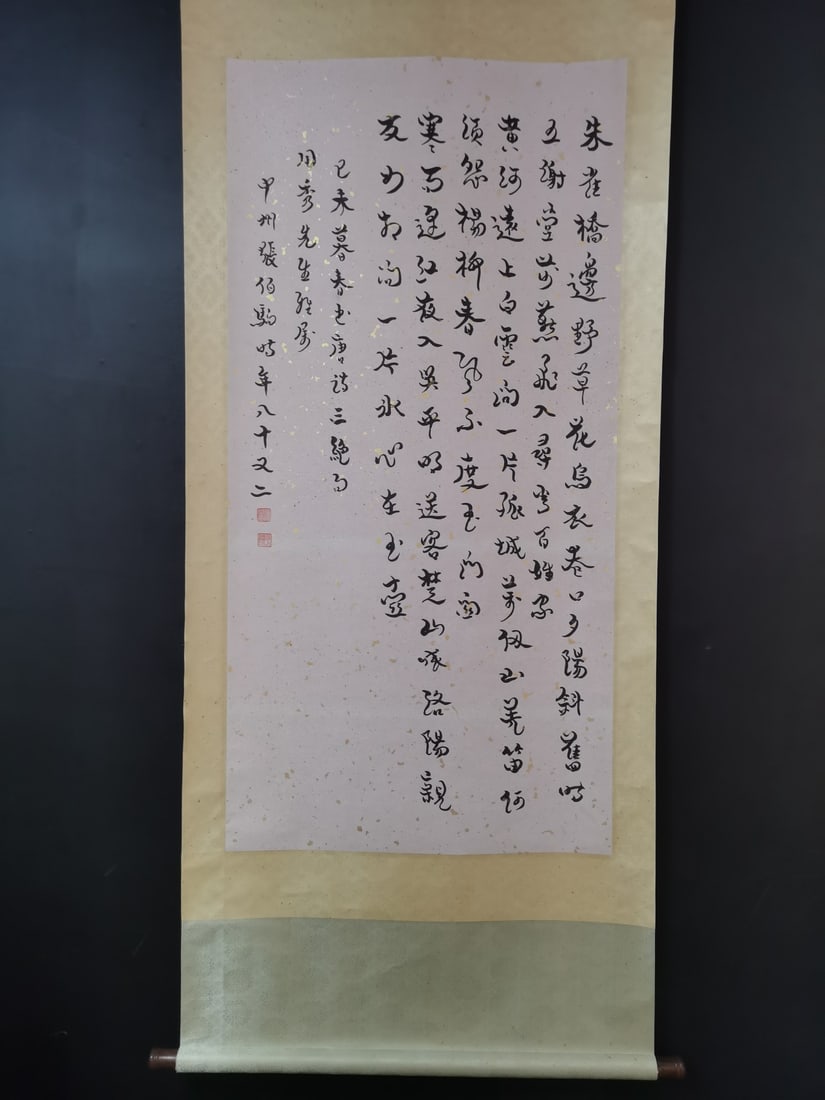 朱雀橋邊野草花烏衣巷口夕陽斜舊時
王謝堂前燕飛入尋常百姓家
黄河遠上白雲间一片孤城萬仞山羌笛何
須怨楊柳春風不度玉门関
寒雨連江夜入吳平明送客楚山孤洛陽親
友如相问一片冰心在玉壺
己未暮春书唐诗三絶句
用秀先生雅属
中州張伯駒时年八十又二